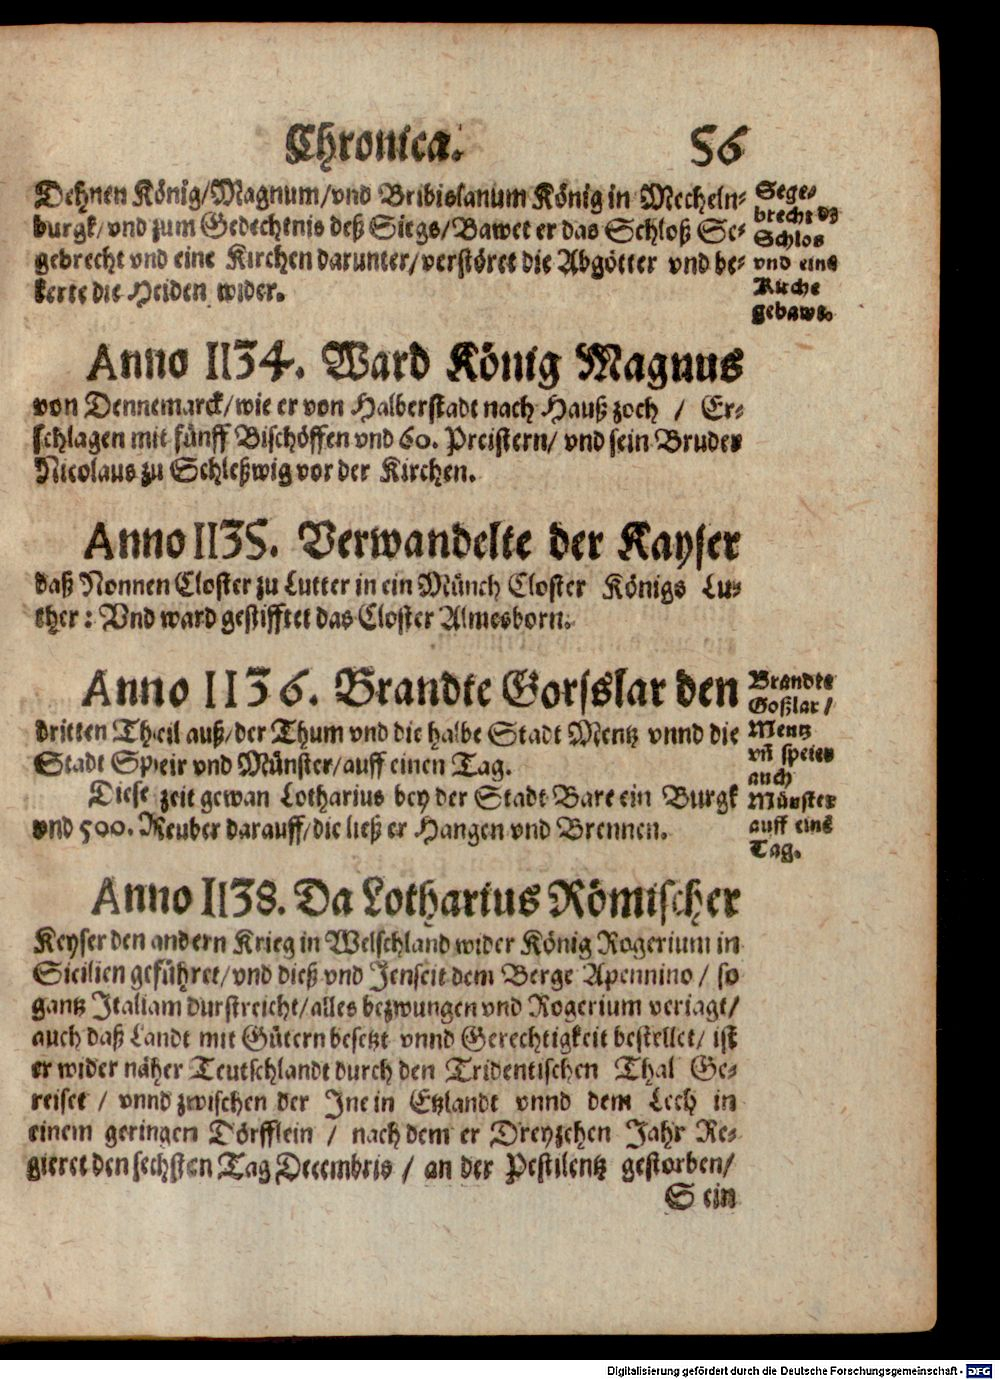 Chronica. 56
Dehnen König/Magnum/vnd Bribislanum König in Mecheln-
burgk/vnd zum Gedechtnis deß Siegs/Bawet er das Schloß Se-
gebrecht vnd eine Kirchen darunter/verstöret die Abgötter vnd be-
kerte die Heiden wider.
Sege-
brecht dz
Schlos
vnd eine
Kirche
gebawt.
Anno 1134. Ward König Magnus
von Dennemarck/wie er von Halberstadt nach Hauß zoch / Er-
schlagen mit fünff Bischöffen vnd 60. Preistern/ vnd sein Bruder
Nicolaus zu Schleßwig vor der Kirchen.
Anno 1135. Verwandelte der Kayser
daß Nonnen Closter zu Lutter in ein Münch Closter Königs Lu-
ther: Vnd ward gestifftet das Closter Almesborn.
Anno 1136. Brandte Gorsslar den
dritten Theil auß/der Thum vnd die halbe Stadt Mentz vnnd die
Stadt Speir vnd Münster/auff einen Tag.
Diese zeit gewan Lotharius bey der Stadt Bare ein Burgk
vnd 500. Reuber darauff/die ließ er Hangen vnd Brennen.
Brandte
Goßlar/
Mentz
vñ speier
auch
Münster
auff eins
Tag.
Anno 1138. Da Lotharius Römischer
Keyser den andern Krieg in Welschland wider König Rogerium in
Sicilien geführet/vnd dieß vnd Jenseit dem Berge Apennino / so
gantz Italiam durstreicht/alles bezwungen vnd Rogerium veriagt/
auch daß Landt mit Gütern besetzt vnnd Gerechtigkeit bestellet/ ist
er wider näher Teutschlandt durch den Tridentischen Thal Ge-
reiset / vnnd zwischen der Jne in Etzlandt vnnd dem Lech in
einem geringen Dörfflein / nach dem er Dreyzehen Jahr Re-
gieret den sechsten Tag Decembris / an der Pestilentz gestorben/
Sein
Digitalisierung gefördert durch die Deutsche Forschungsgemeinschaft - DFG